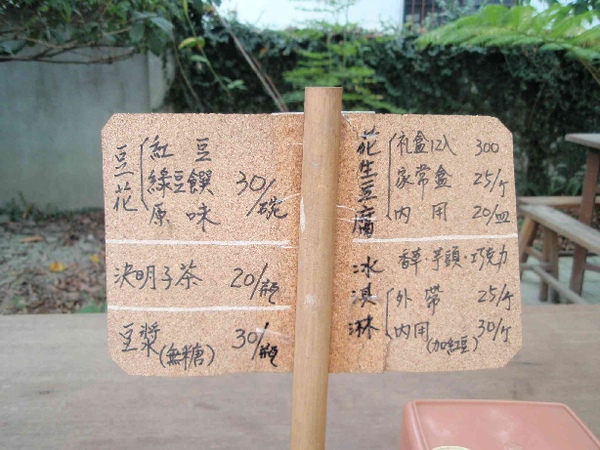 豆花
紅豆
綠豆饌
原味
30/碗
決明子茶 20/瓶
豆漿(無糖) 30/瓶
花生豆腐
礼盒12入 300
家常盒 25/个
內用 20/皿
冰淇淋
香草·芋頭·巧克力
外帶 25/个
內用(加紅豆) 30/个